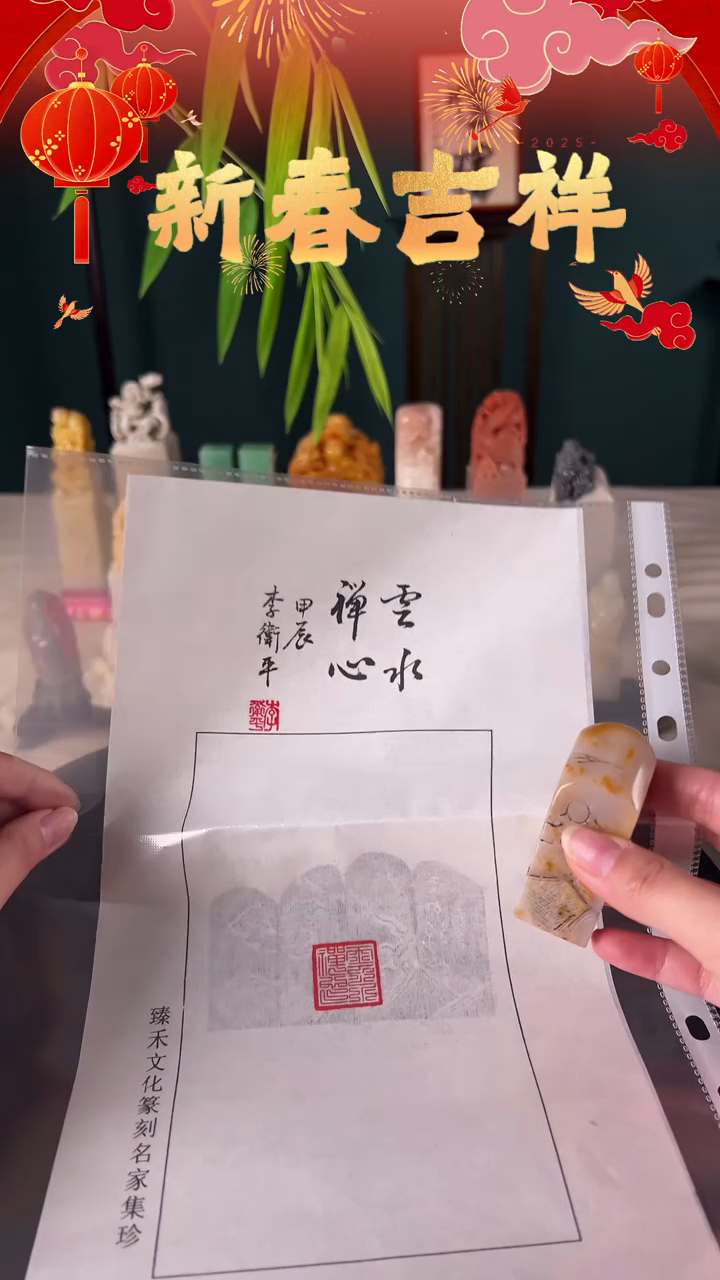 -2025-
新春吉祥
雲水
禅心
甲辰
李衛平
雲水禅心
臻禾文化篆刻名家集珍